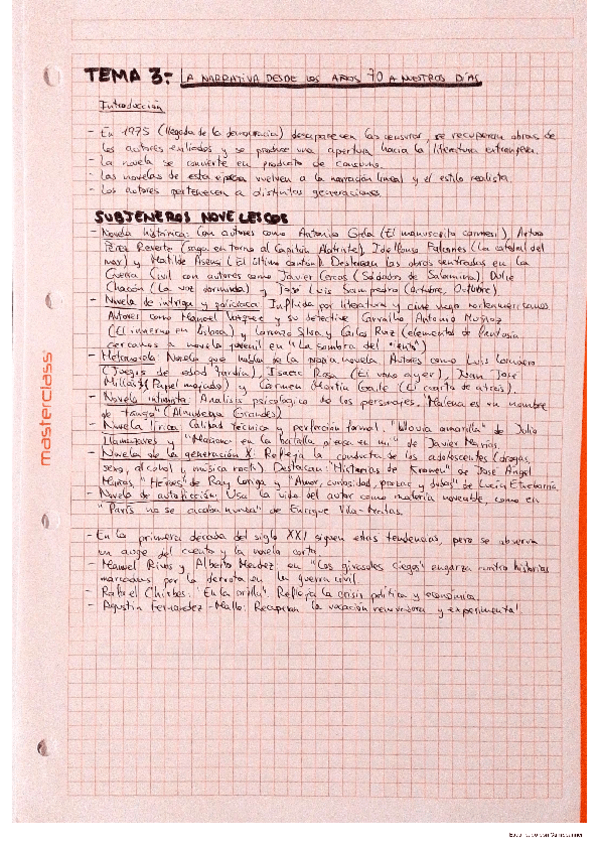 TEMA 3:- LA NARRATIVA DESDE LOS AÑOS 70 A NUESTROS DÍAS
Introducción
- En 1975 (llegada de la democracia) desaparecen las censuras, se recuperan obras de
los autores exiliados y se produce una apertura hacia la literatura extranjera.
- La novela se convierte en producto de consumo.
- Las novelas de esta época vuelven a la narración lineal y el estilo realista.
- Los autores pertenecen a distintas generaciones
SUBJENEROS NOVELESCOS
- Novela histórica: Con autores como Antonio Gala (El manuscrito carmesí), Arturo
Pérez Reverte (saga en torno al Capitán Alatriste), Idelfonso Falcones (La catedral del
mar) y Matilde Asensi (El último catón). Destacan las obras centradas en la
Guerra Civil con autores como Javier Cercas (Soldados de Salamina), Dulce
Chacón (La voz dormida) y José Luis Sampedro (Octubre, Octubre)
- Novela de intriga y policíaca: Influida por literatura y cine negro norteamericanos
Autores como Manuel Vázquez y su detective Carvalho, Antonio Muñoz
(El invierno en Lisboa) y Lorenzo Silva y Carlos Ruiz (elementos de fantasía
cercanos a novela juvenil en "La sombra del viento")
- Metanovela: Novela que habla de la propia novela. Autores como Luis Landero
(Juegos de edad tardía), Isaac Rosa (El vano ayer), Juan José
Millás (Papel mojado) y Carmen Martín Gaite (El cuarto de atrás).
- Novela intimista: Análisis psicológico de los personajes. "Malena es un nombre
de tango" (Almudena Grandes)
- Novela lírica: Calidad técnica y perfección formal. "Lluvia amarilla" de Julio
Llamazares y "Mañana en la batalla piensa en mí" de Javier Marías.
- Novela de la generación X: Refleja la conducta de los adolescentes (drogas,
sexo, alcohol y música rock). Destacan: "Historias de Kronen" de José Ángel
Mañas, "Héroes" de Ray Loriga y "Amor, curiosidad, prozac y dudas" de Lucía Etxebarría.
- Novela de autoficción: Usa la vida del autor como materia novelable, como en
"París no se acaba nunca" de Enrique Vila-Matas.
- En la primera década del siglo XXI siguen estas tendencias, pero se observa
un auge del cuento y la novela corta.
- Manuel Rivas y Alberto Méndez: en "Los girasoles ciegos" engarza cuatro historias
marcadas por la derrota en la guerra civil
- Rafael Chirbes: "En la orilla". Refleja la crisis política y económica.
- Agustín Fernández-Mallo: Recuperan la vocación renovadora y experimental.
masterclass